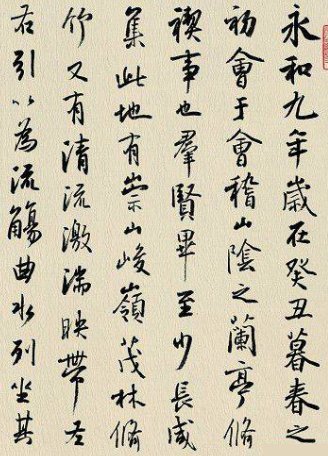 永和九年歲在癸丑暮春之
初會于會稽山陰之蘭亭脩
禊事也羣賢畢至少長咸
集此地有崇山峻嶺茂林脩
竹又有清流激湍映帶左
右引以為流觴曲水列坐其